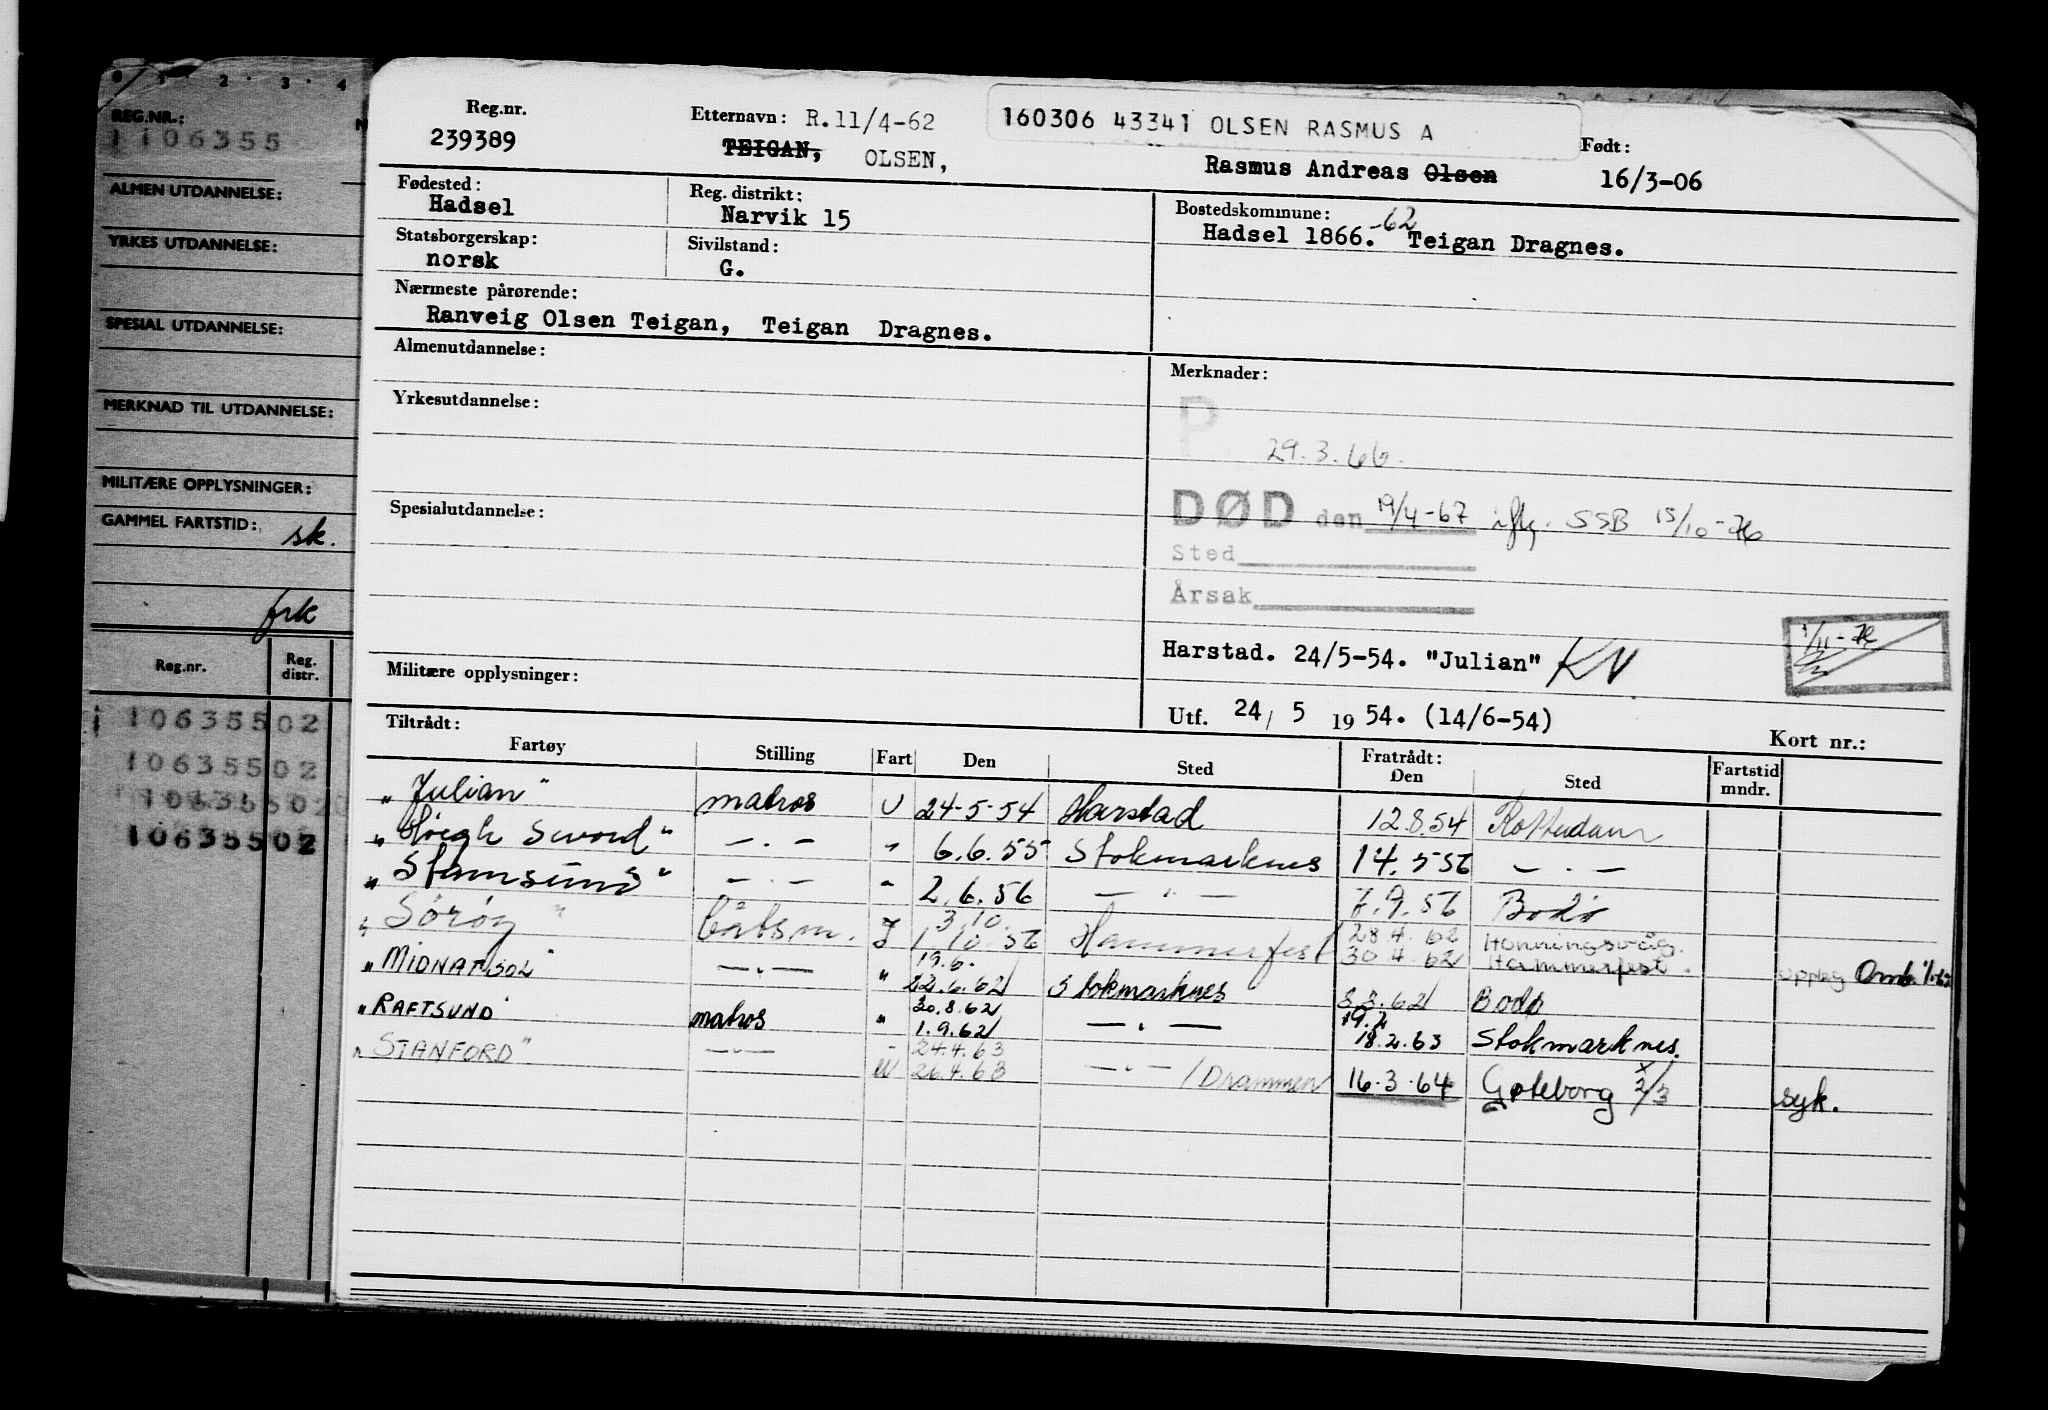 0 1 2 3 4
REG.NR.:
1106355
ALMEN UTDANNELSE:
YRKES UTDANNELSE:
SPESIAL UTDANNELSE:
MERKNAD TIL UTDANNELSE:
MILITÆRE OPPLYSNINGER:
GAMMEL FARTSTID: sk.
frk
Reg.nr. Reg. distr.
10635502
10635502
10635502
10635502
Reg.nr. Etternavn: R.11/4-62 160306 43341 OLSEN RASMUS A Født:
239389 TEIGAN, OLSEN, Rasmus Andreas Olsen 16/3-06
Fødested: Reg. distrikt: Bostedskommune:
Hadsel Narvik 15 Hadsel 1866.-62 Teigan Dragnes.
Statsborgerskap: Sivilstand:
norsk G.
Nærmeste pårørende:
Ranveig Olsen Teigan, Teigan Dragnes.
Almenutdannelse:
Merknader:
Yrkesutdannelse:
P
29.3.66.
Spesialutdannelse:
DØD den 19/4-67 iflg. SSB 15/10-76
Sted
Årsak
Harstad. 24/5-54. "Julian" KV
Militære opplysninger:
Utf. 24/5 1954. (14/6-54)
Tiltrådt: Fratrådt: Kort nr.:
Fartøy Stilling Fart Den Sted Den Sted Fartstid mndr.
"Julian" matros U 24-5-54 Harstad 12.8.54 Rotterdam
"Høegh Sword" -.- " 6.6.55 Stokmarknes 14.5.56 -.-
"Stamsund" -.- " 2.6.56 -"- 7.9.56 Bodø
3.10. 28.4.62 Honningsvåg.
"Sörøy" båtsm. I 1.10.56 Hammerfest 30.4.62 Hammerfest. opplag
19.6.
"MIDNATSOL" -.- " 22.6.62 Stokmarknes 8.8.62 Bodø
30.8.62 19.2
"RAFTSUND" matros " 1.9.62 -.- 18.2.63 Stokmarknes.
24.4.63
"STANFORD" -.- W 26.4.63 -.- /Drammen 16.3.64 Gøteborg x 2/3 syk.